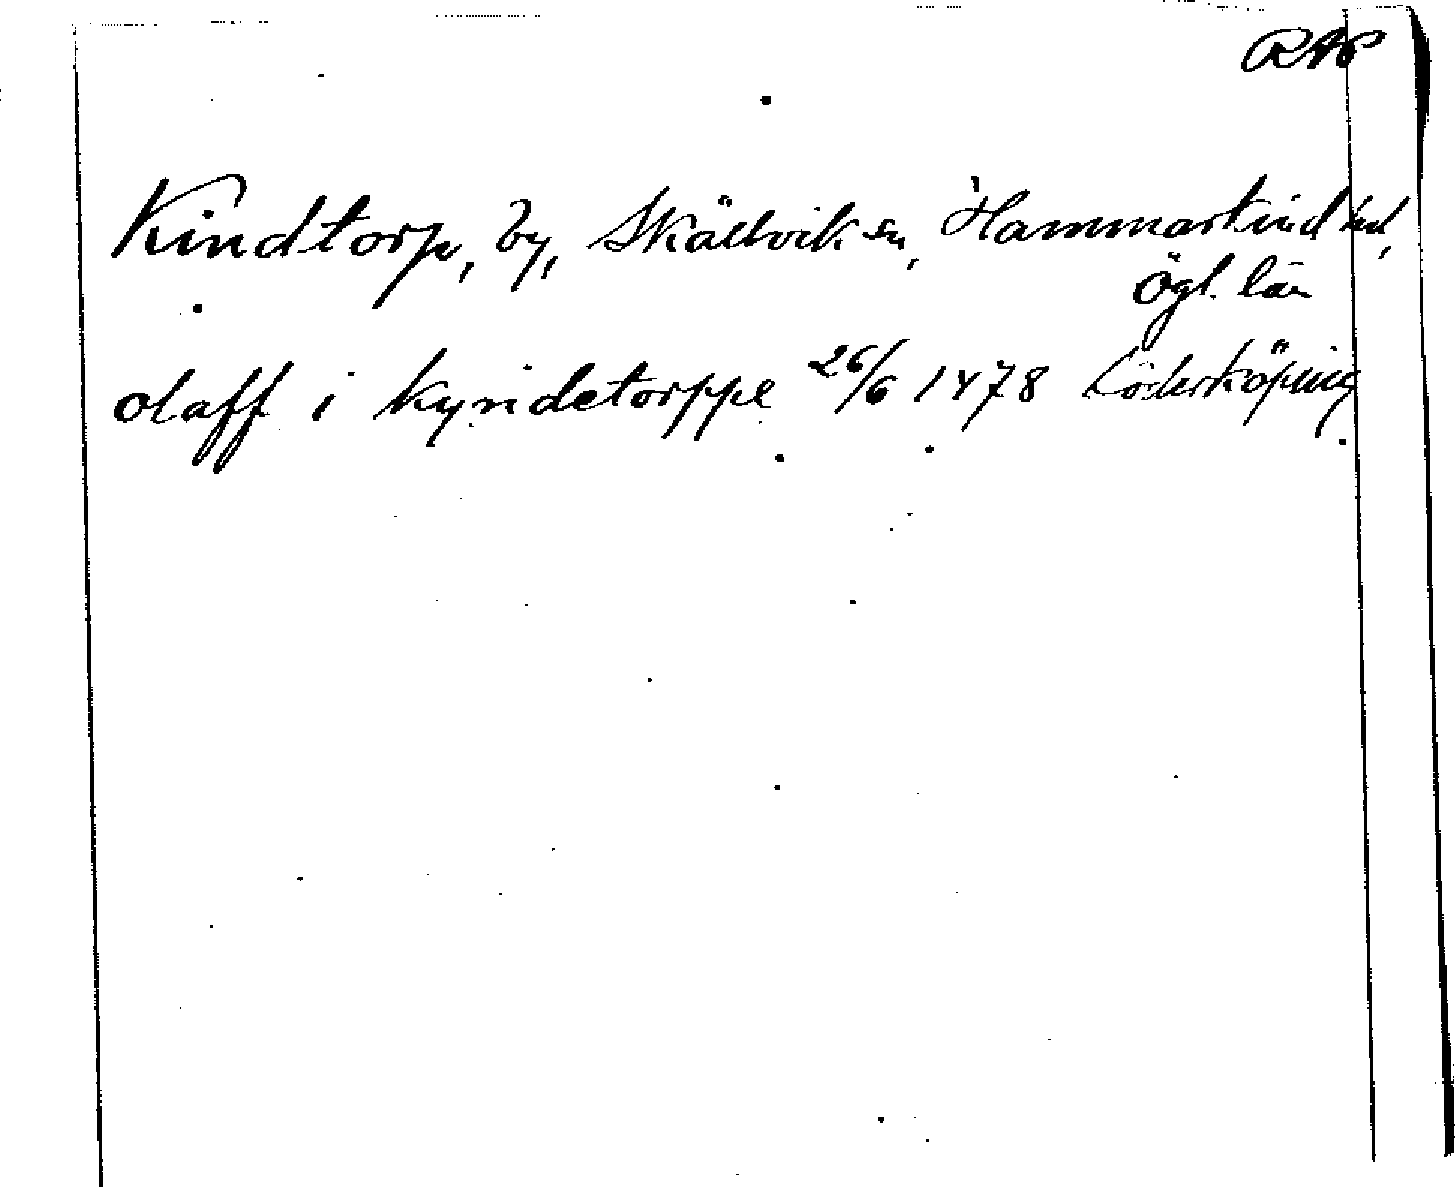 RAP
Kindtorp, by, Skällvik sn, Hammarkind hd,
Ögl. län
olaff i kyndetorppe 26/6 1478 Söderköping